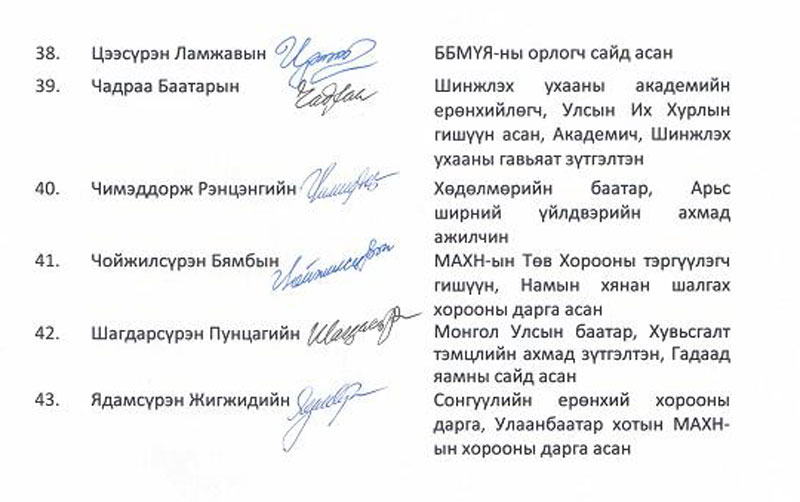 38. Цээсүрэн Ламжавын ББМҮЯ-ны орлогч сайд асан
39. Чадраа Баатарын Чадраа Шинжлэх ухааны академийн
ерөнхийлөгч, Улсын Их Хурлын
гишүүн асан, Академич, Шинжлэх
ухааны гавьяат зүтгэлтэн
40. Чимэддорж Рэнцэнгийн Хөдөлмөрийн баатар, Арьс
ширний үйлдвэрийн ахмад
ажилчин
41. Чойжилсүрэн Бямбын Чойжилсүрэн МАХН-ын Төв Хорооны тэргүүлэгч
гишүүн, Намын хянан шалгах
хорооны дарга асан
42. Шагдарсүрэн Пунцагийн Монгол Улсын баатар, Хувьсгалт
тэмцлийн ахмад зүтгэлтэн, Гадаад
яамны сайд асан
43. Ядамсүрэн Жигжидийн Сонгуулийн ерөнхий хорооны
дарга, Улаанбаатар хотын МАХН-
ын хорооны дарга асан